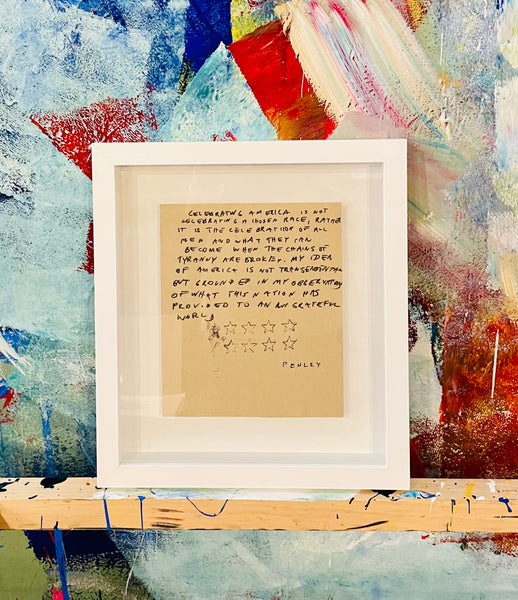 CELEBRATNG AMERICA IS NOT
CELEBRATING A CHOSEN RACE, RATHER
IT IS THE CELEBRATION OF ALL
MEN AND WHAT THEY CAN
BECOME WHEN THE CHAINS OF
TYRANNY ARE BROKEN. MY IDEA
OF AMERICA IS NOT
BUT GROUNDED IN MY OBSERVATION
OF WHAT THIS NATION HAS
PROVIDED TO AN UN GRATEFUL
WORLD
PENLEY